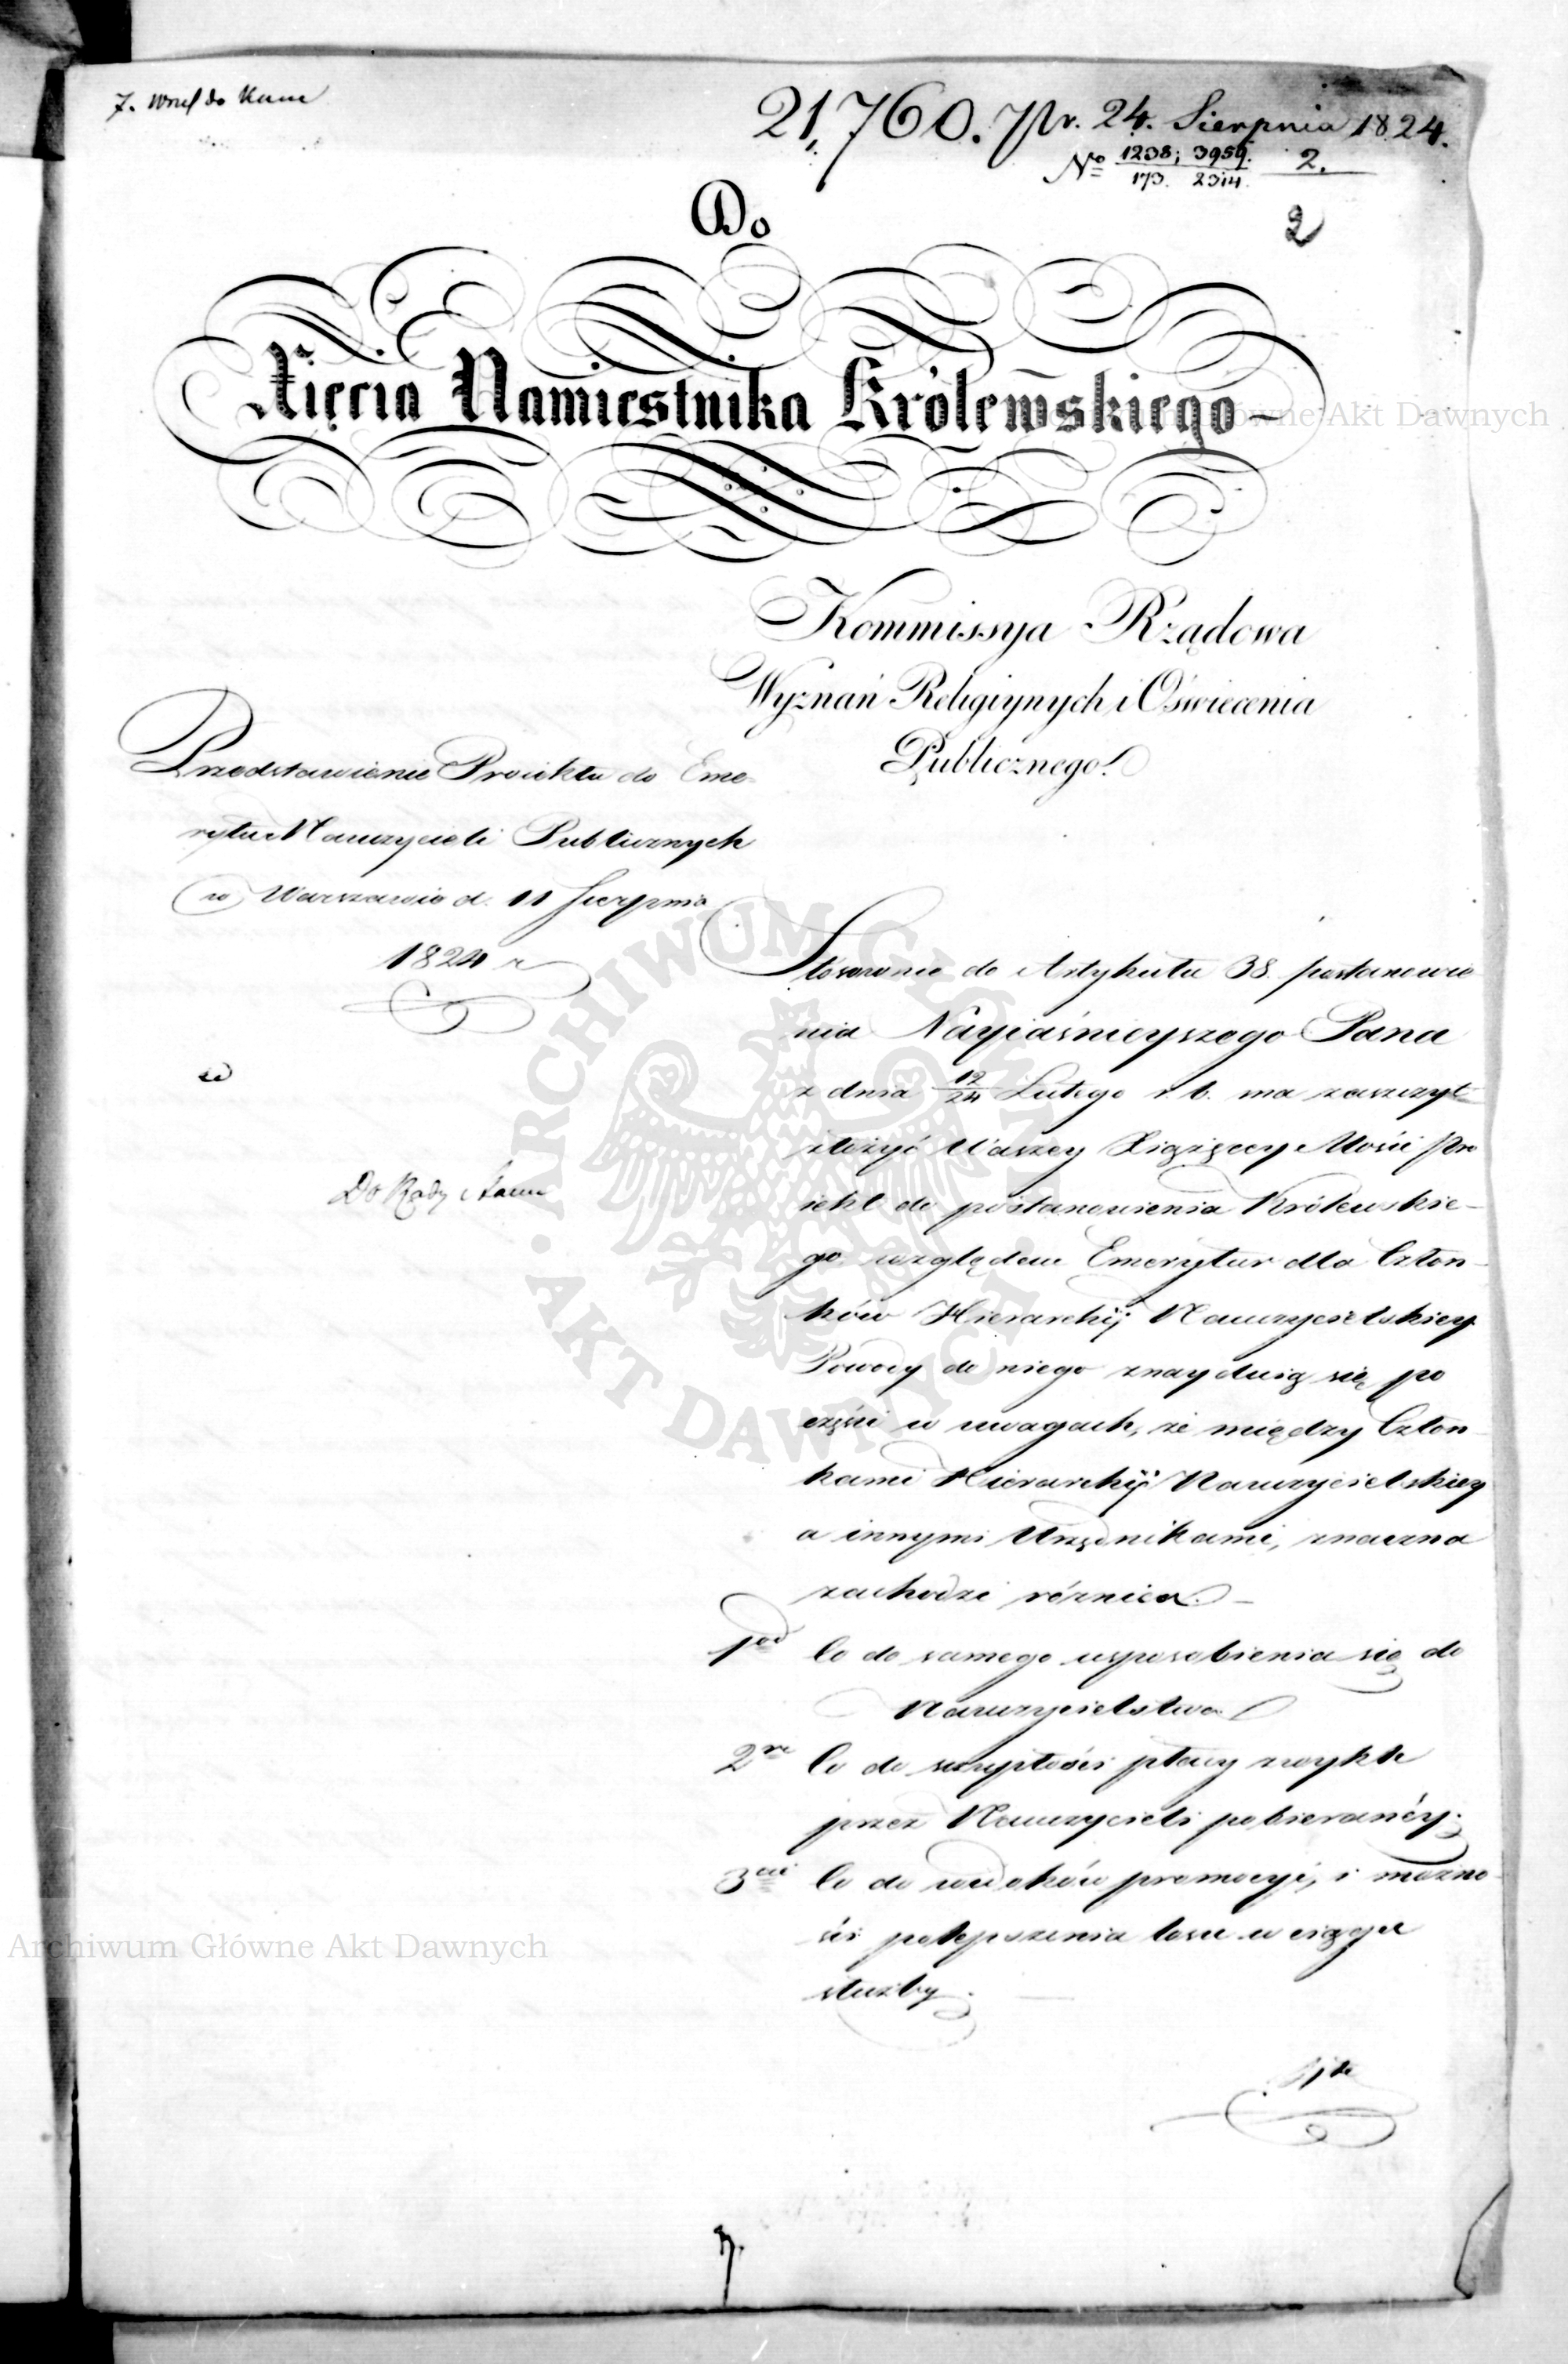 21,760. pr. 24. Sierpnia 1824.
No 1238; 3959. 2.
173. 2314.
2
Do
Xięcia Namiestnika Królewskiego
Kommissya Rządowa
Wyznań Religiynych i Oświecenia
Publicznego.
Przedstawienie Proiektu do Eme-
rytur Nauczycieli Publicznych
w Warszawie d. 11 Sierpnia
1824 r
Do Rady Stanu
Stosownie do Artykułu 38. postanowie
nia Nayiaśnieyszego Pana
z dnia 12/24 Lutego r. b. ma zaszczyt
złożyć Waszey Xiążęcey Mości Pro
iekt do postanowienia Królewskie-
go względem Emerytur dla Człon-
ków Hierarchij Nauczycielskiey
Powody do niego znayduią się po
części w uwagach, że między Człon
kami Hierarchij Nauczycielskiey
a innymi Urzędnikami, znaczna
zachodzi różnica. –
1od Co do samego usposobienia się do
Nauczycielstwa
2re Co do szczupłości płacy zwykle
przez Nauczycieli pobieranéy.
3cie Co do widoków promocyi, i możno-
ści polepszenia losu w ciągu
służby. —
Archiwum Główne Akt Dawnych
ARCHIWUM GŁÓWNE
· AKT DAWNYCH ·
Archiwum Główne Akt Dawnych